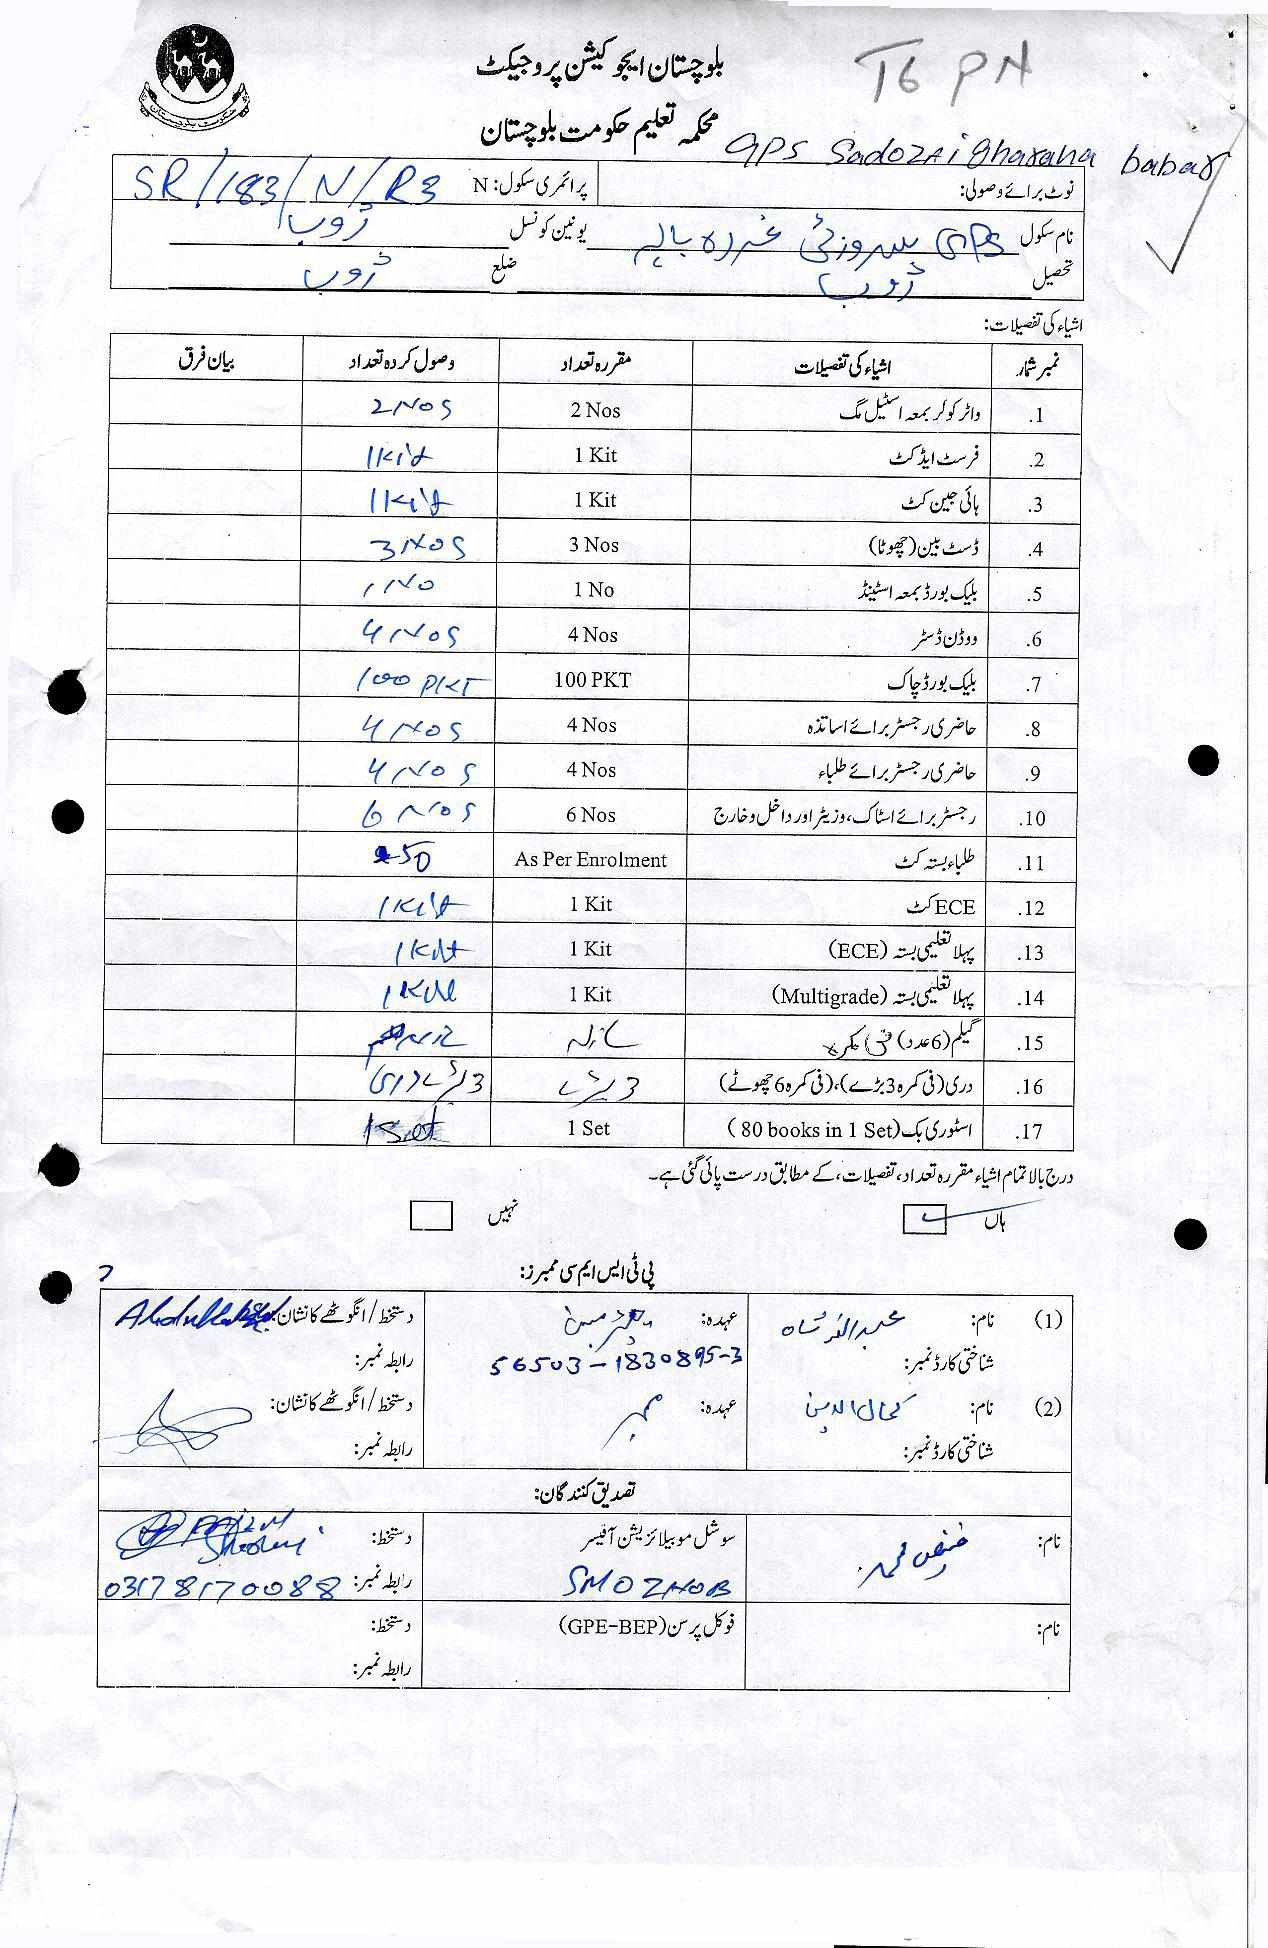 بلوچستان ایجوکیشن پروجیکٹ
T6 PN
محکمہ تعلیم حکومت بلوچستان
GPS Sadozai Gharana babar
نوٹ برائے وصولی: پرائمری سکول: N SR/183/N/R3
نام سکول GPS سدوزئی غڑہ بابر یونین کونسل ژوب
تحصیل ژوب ضلع ژوب
اشیاء کی تفصیلات:
نمبر شمار اشیاء کی تفصیلات مقررہ تعداد وصول کردہ تعداد بیان فرق
1. واٹر کولر بمعہ اسٹیل مگ 2 Nos 2 Nos
2. فرسٹ ایڈ کٹ 1 Kit 1 Kit
3. ہائی جین کٹ 1 Kit 1 Kit
4. ڈسٹ بین (چھوٹا) 3 Nos 3 Nos
5. بلیک بورڈ بمعہ اسٹینڈ 1 No 1 No
6. ووڈن ڈسٹر 4 Nos 4 Nos
7. بلیک بورڈ چاک 100 PKT 100 PKT
8. حاضری رجسٹر برائے اساتذہ 4 Nos 4 Nos
9. حاضری رجسٹر برائے طلباء 4 Nos 4 Nos
10. رجسٹر برائے اسٹاک، وزیٹر اور داخل و خارج 6 Nos 6 Nos
11. طلباء بستہ کٹ As Per Enrolment 50
12. ECE کٹ 1 Kit 1 Kit
13. پہلا تعلیمی بستہ (ECE) 1 Kit 1 Kit
14. پہلا تعلیمی بستہ (Multigrade) 1 Kit 1 Kit
15. گیلم (6 عدد) فی کمرہ
16. دری (فی کمرہ 3 بڑے)، (فی کمرہ 6 چھوٹے) 3 بڑے 3 بڑے
17. اسٹوری بک (80 books in 1 Set) 1 Set 1 Set
درج بالا تمام اشیاء مقررہ تعداد، تفصیلات، کے مطابق درست پائی گئی ہے۔
ہاں نہیں
پی ٹی ایس ایم سی ممبرز:
(1) نام: عہدہ: چیئرمین دستخط/انگوٹھے کا نشان:
شناختی کارڈ نمبر: 56503-1830895-3 رابطہ نمبر:
(2) نام: کمال الدین عہدہ: ممبر دستخط/انگوٹھے کا نشان:
شناختی کارڈ نمبر: رابطہ نمبر:
تصدیق کنندگان:
نام: فیض محمد سوشل موبیلائزیشن آفیسر دستخط:
SMO ZHOB رابطہ نمبر: 03178170088
نام: فوکل پرسن (GPE-BEP) دستخط:
رابطہ نمبر: